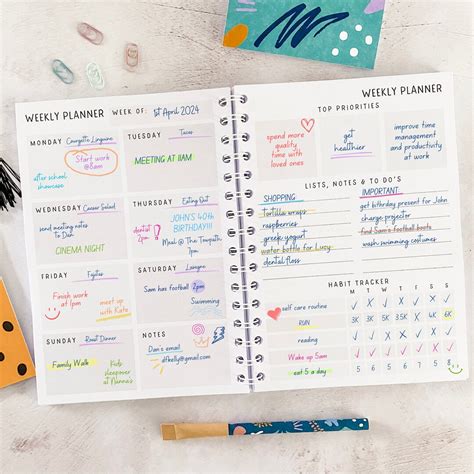 WEEKLY PLANNER WEEK OF: 1st April 2024
MONDAY Courgette Linguine
Start work
@8am
after school
showcase
TUESDAY Tacos
MEETING AT 11AM
WEDNESDAY Caesar Salad
send meeting notes
to Dan
CINEMA NIGHT
THURSDAY Eating Out
dentist
2pm
JOHN'S 40th
BIRTHDAY!!!
Meal @ The Towpath
7pm
FRIDAY Fajitas
Finish work
at 1pm
meet up
with Kate
SATURDAY Lasagne
Sam has football 2pm
Swimming
SUNDAY Roast Dinner
Family Walk
Kids
sleepover
at Nanna's
NOTES
Dan's email
dfkelly@gmail.com
WEEKLY PLANNER
TOP PRIORITIES
spend more
quality
time with
loved ones
get
healthier
improve time
management
and productivity
at work
LISTS, NOTES & TO DO'S
SHOPPING
tortilla wraps
raspberries
greek yogurt
water bottle for Lucy
dental floss
IMPORTANT
get birthday present for John
charge projector
find Sam's football boots
wash swimming costumes
HABIT TRACKER
M T W T F S S
self care routine
RUN 3K 5K 4K 5K 5K 6K
reading
Wake up 5am
eat 5 a day 5 6 5 7 5 8